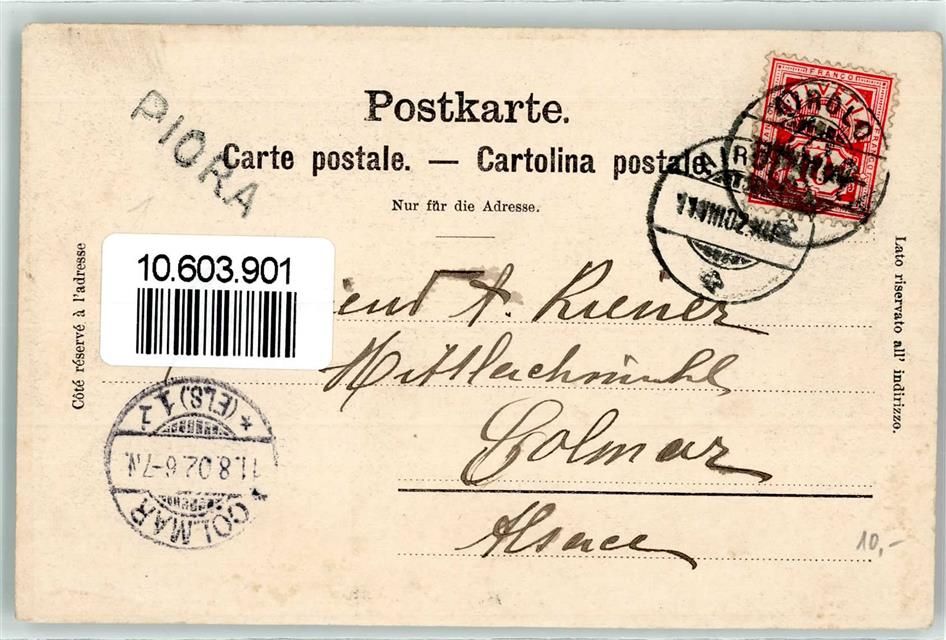 Postkarte.
Carte postale. — Cartolina postale.
Nur für die Adresse.
PIORA
FRANCO
AIROLO
AIROLO
Côté réservé à l'adresse
Lato riservato all' indirizzo.
10.603.901
A. Kiener
Mittlachmühl
Colmar
Alsace
COLMAR
11.8.02.6-7N.
* (ELS.) 1 *
10,-